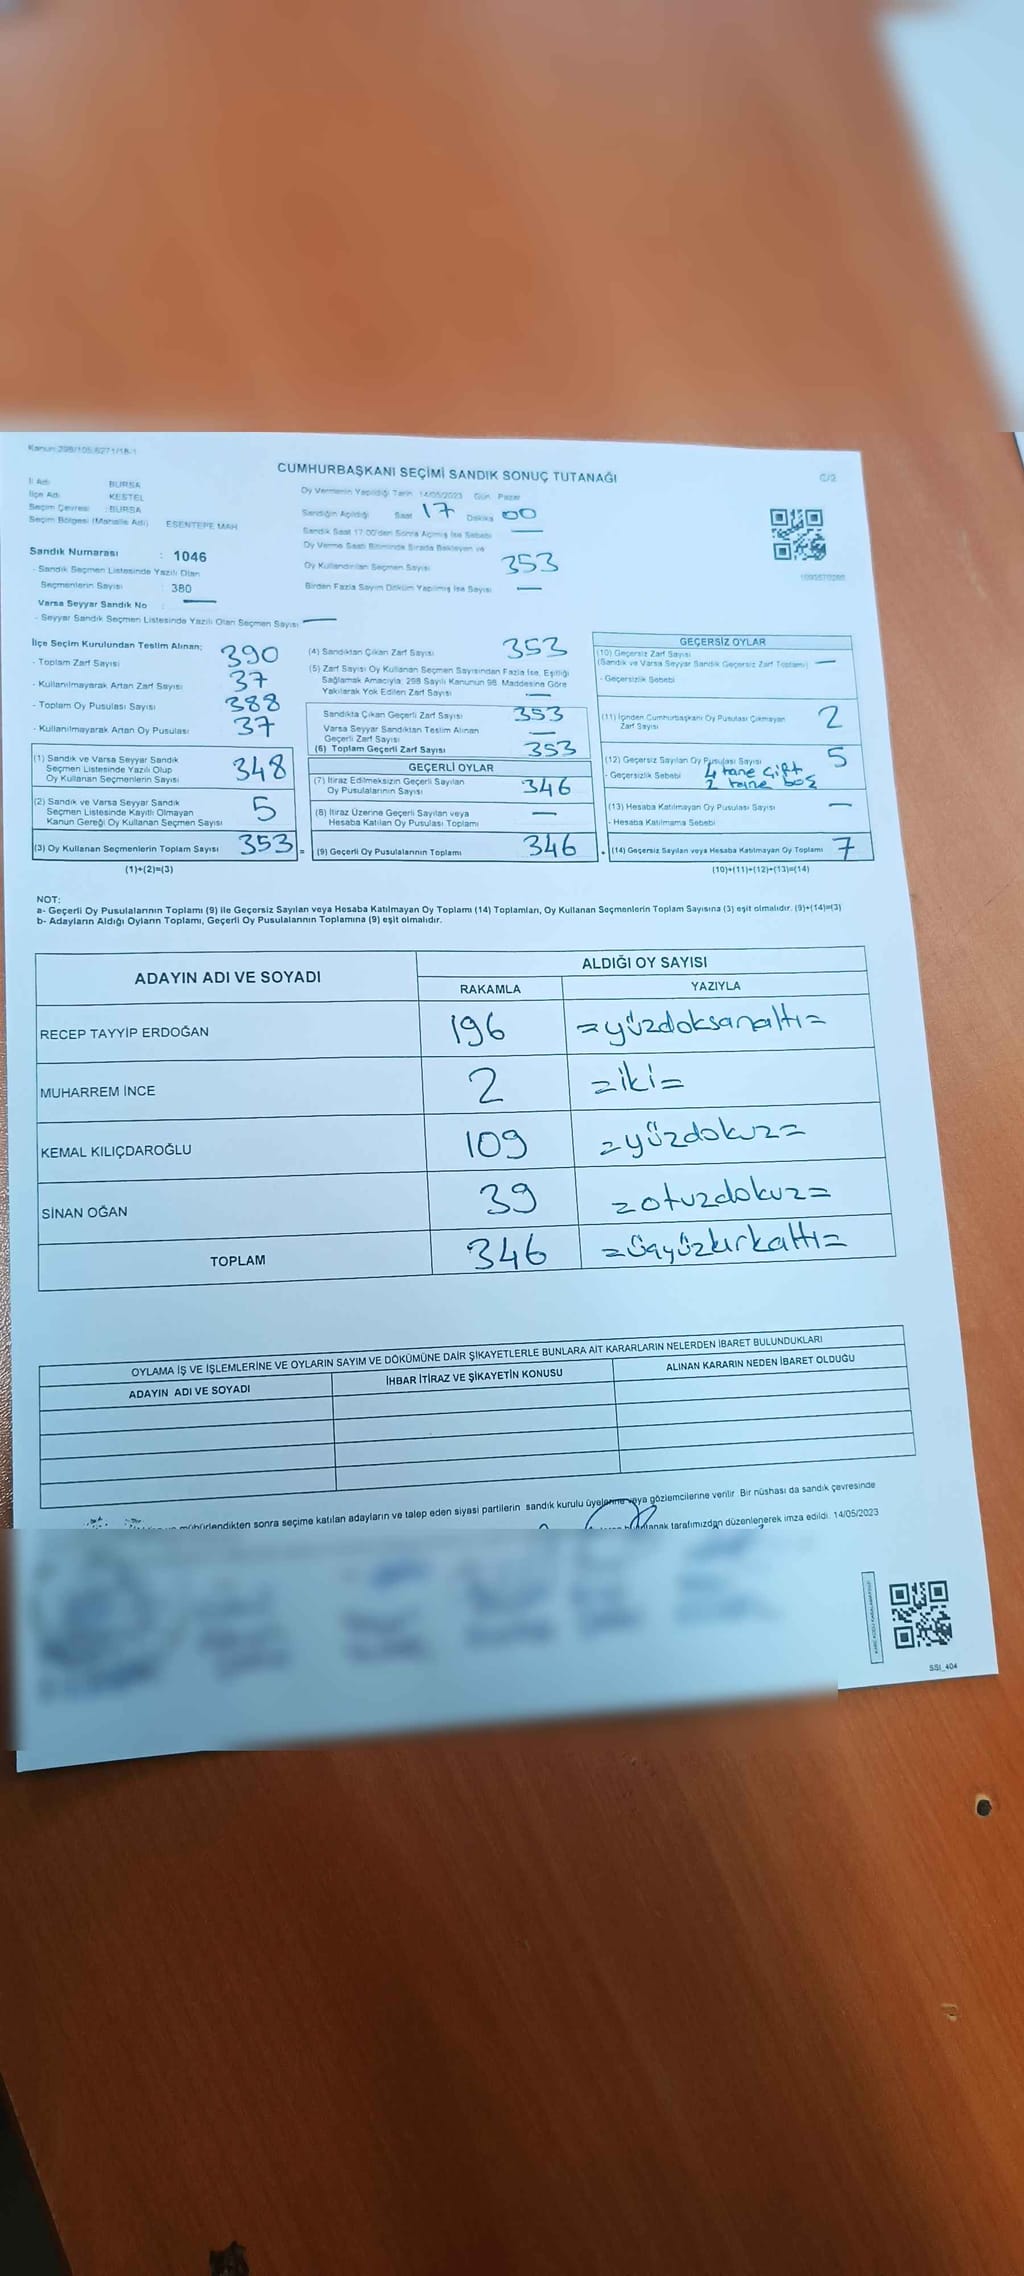 Kanun:298/105;6271/18-1
CUMHURBAŞKANI SEÇİMİ SANDIK SONUÇ TUTANAĞI
C/2
İl Adı BURSA
İlçe Adı KESTEL
Seçim Çevresi : BURSA
Seçim Bölgesi (Mahalle Adı) ESENTEPE MAH
Sandık Numarası : 1046
- Sandık Seçmen Listesinde Yazılı Olan
Seçmenlerin Sayısı : 380
Varsa Seyyar Sandık No :
- Seyyar Sandık Seçmen Listesinde Yazılı Olan Seçmen Sayısı
Oy Vermenin Yapıldığı Tarih 14/05/2023 Gün Pazar
Sandığın Açıldığı Saat 17 Dakika 00
Sandık Saat 17.00'den Sonra Açılmış İse Sebebi
Oy Verme Saati Bitiminde Sırada Bekleyen ve
Oy Kullandırılan Seçmen Sayısı 353
Birden Fazla Sayım Döküm Yapılmış İse Sayısı
İlçe Seçim Kurulundan Teslim Alınan;
- Toplam Zarf Sayısı 390
- Kullanılmayarak Artan Zarf Sayısı 37
- Toplam Oy Pusulası Sayısı 388
- Kullanılmayarak Artan Oy Pusulası 37
(1) Sandık ve Varsa Seyyar Sandık
Seçmen Listesinde Yazılı Olup
Oy Kullanan Seçmenlerin Sayısı 348
(2) Sandık ve Varsa Seyyar Sandık
Seçmen Listesinde Kayıtlı Olmayan
Kanun Gereği Oy Kullanan Seçmen Sayısı 5
(3) Oy Kullanan Seçmenlerin Toplam Sayısı 353 =
(1)+(2)=(3)
(4) Sandıktan Çıkan Zarf Sayısı 353
(5) Zarf Sayısı Oy Kullanan Seçmen Sayısından Fazla İse, Eşitliği
Sağlamak Amacıyla; 298 Sayılı Kanunun 98. Maddesine Göre
Yakılarak Yok Edilen Zarf Sayısı
Sandıkta Çıkan Geçerli Zarf Sayısı 353
Varsa Seyyar Sandıktan Teslim Alınan
Geçerli Zarf Sayısı
(6) Toplam Geçerli Zarf Sayısı 353
GEÇERLİ OYLAR
(7) İtiraz Edilmeksizin Geçerli Sayılan
Oy Pusulalarının Sayısı 346
(8) İtiraz Üzerine Geçerli Sayılan veya
Hesaba Katılan Oy Pusulası Toplamı
(9) Geçerli Oy Pusulalarının Toplamı 346
GEÇERSİZ OYLAR
(10) Geçersiz Zarf Sayısı
(Sandık ve Varsa Seyyar Sandık Geçersiz Zarf Toplamı)
- Geçersizlik Sebebi
(11) İçinden Cumhurbaşkanı Oy Pusulası Çıkmayan
Zarf Sayısı 2
(12) Geçersiz Sayılan Oy Pusulası Sayısı 5
- Geçersizlik Sebebi 4 tane çift
2 tane boş
(13) Hesaba Katılmayan Oy Pusulası Sayısı
- Hesaba Katılmama Sebebi
(14) Geçersiz Sayılan veya Hesaba Katılmayan Oy Toplamı 7
(10)+(11)+(12)+(13)=(14)
NOT:
a- Geçerli Oy Pusulalarının Toplamı (9) ile Geçersiz Sayılan veya Hesaba Katılmayan Oy Toplamı (14) Toplamları, Oy Kullanan Seçmenlerin Toplam Sayısına (3) eşit olmalıdır. (9)+(14)=(3)
b- Adayların Aldığı Oyların Toplamı, Geçerli Oy Pusulalarının Toplamına (9) eşit olmalıdır.
ADAYIN ADI VE SOYADI
ALDIĞI OY SAYISI
RAKAMLA YAZIYLA
RECEP TAYYİP ERDOĞAN 196 =yüzdoksanaltı=
MUHARREM İNCE 2 =iki=
KEMAL KILIÇDAROĞLU 109 =yüzdokuz=
SİNAN OĞAN 39 =otuzdokuz=
TOPLAM 346 =üçyüzkırkaltı=
OYLAMA İŞ VE İŞLEMLERİNE VE OYLARIN SAYIM VE DÖKÜMÜNE DAİR ŞİKAYETLERLE BUNLARA AİT KARARLARIN NELERDEN İBARET BULUNDUKLARI
ADAYIN ADI VE SOYADI İHBAR İTİRAZ VE ŞİKAYETİN KONUSU ALINAN KARARIN NEDEN İBARET OLDUĞU
mühürlendikten sonra seçime katılan adayların ve talep eden siyasi partilerin sandık kurulu üyelerine veya gözlemcilerine verilir. Bir nüshası da sandık çevresinde
tarafımızdan düzenlenerek imza edildi. 14/05/2023
SSI_404